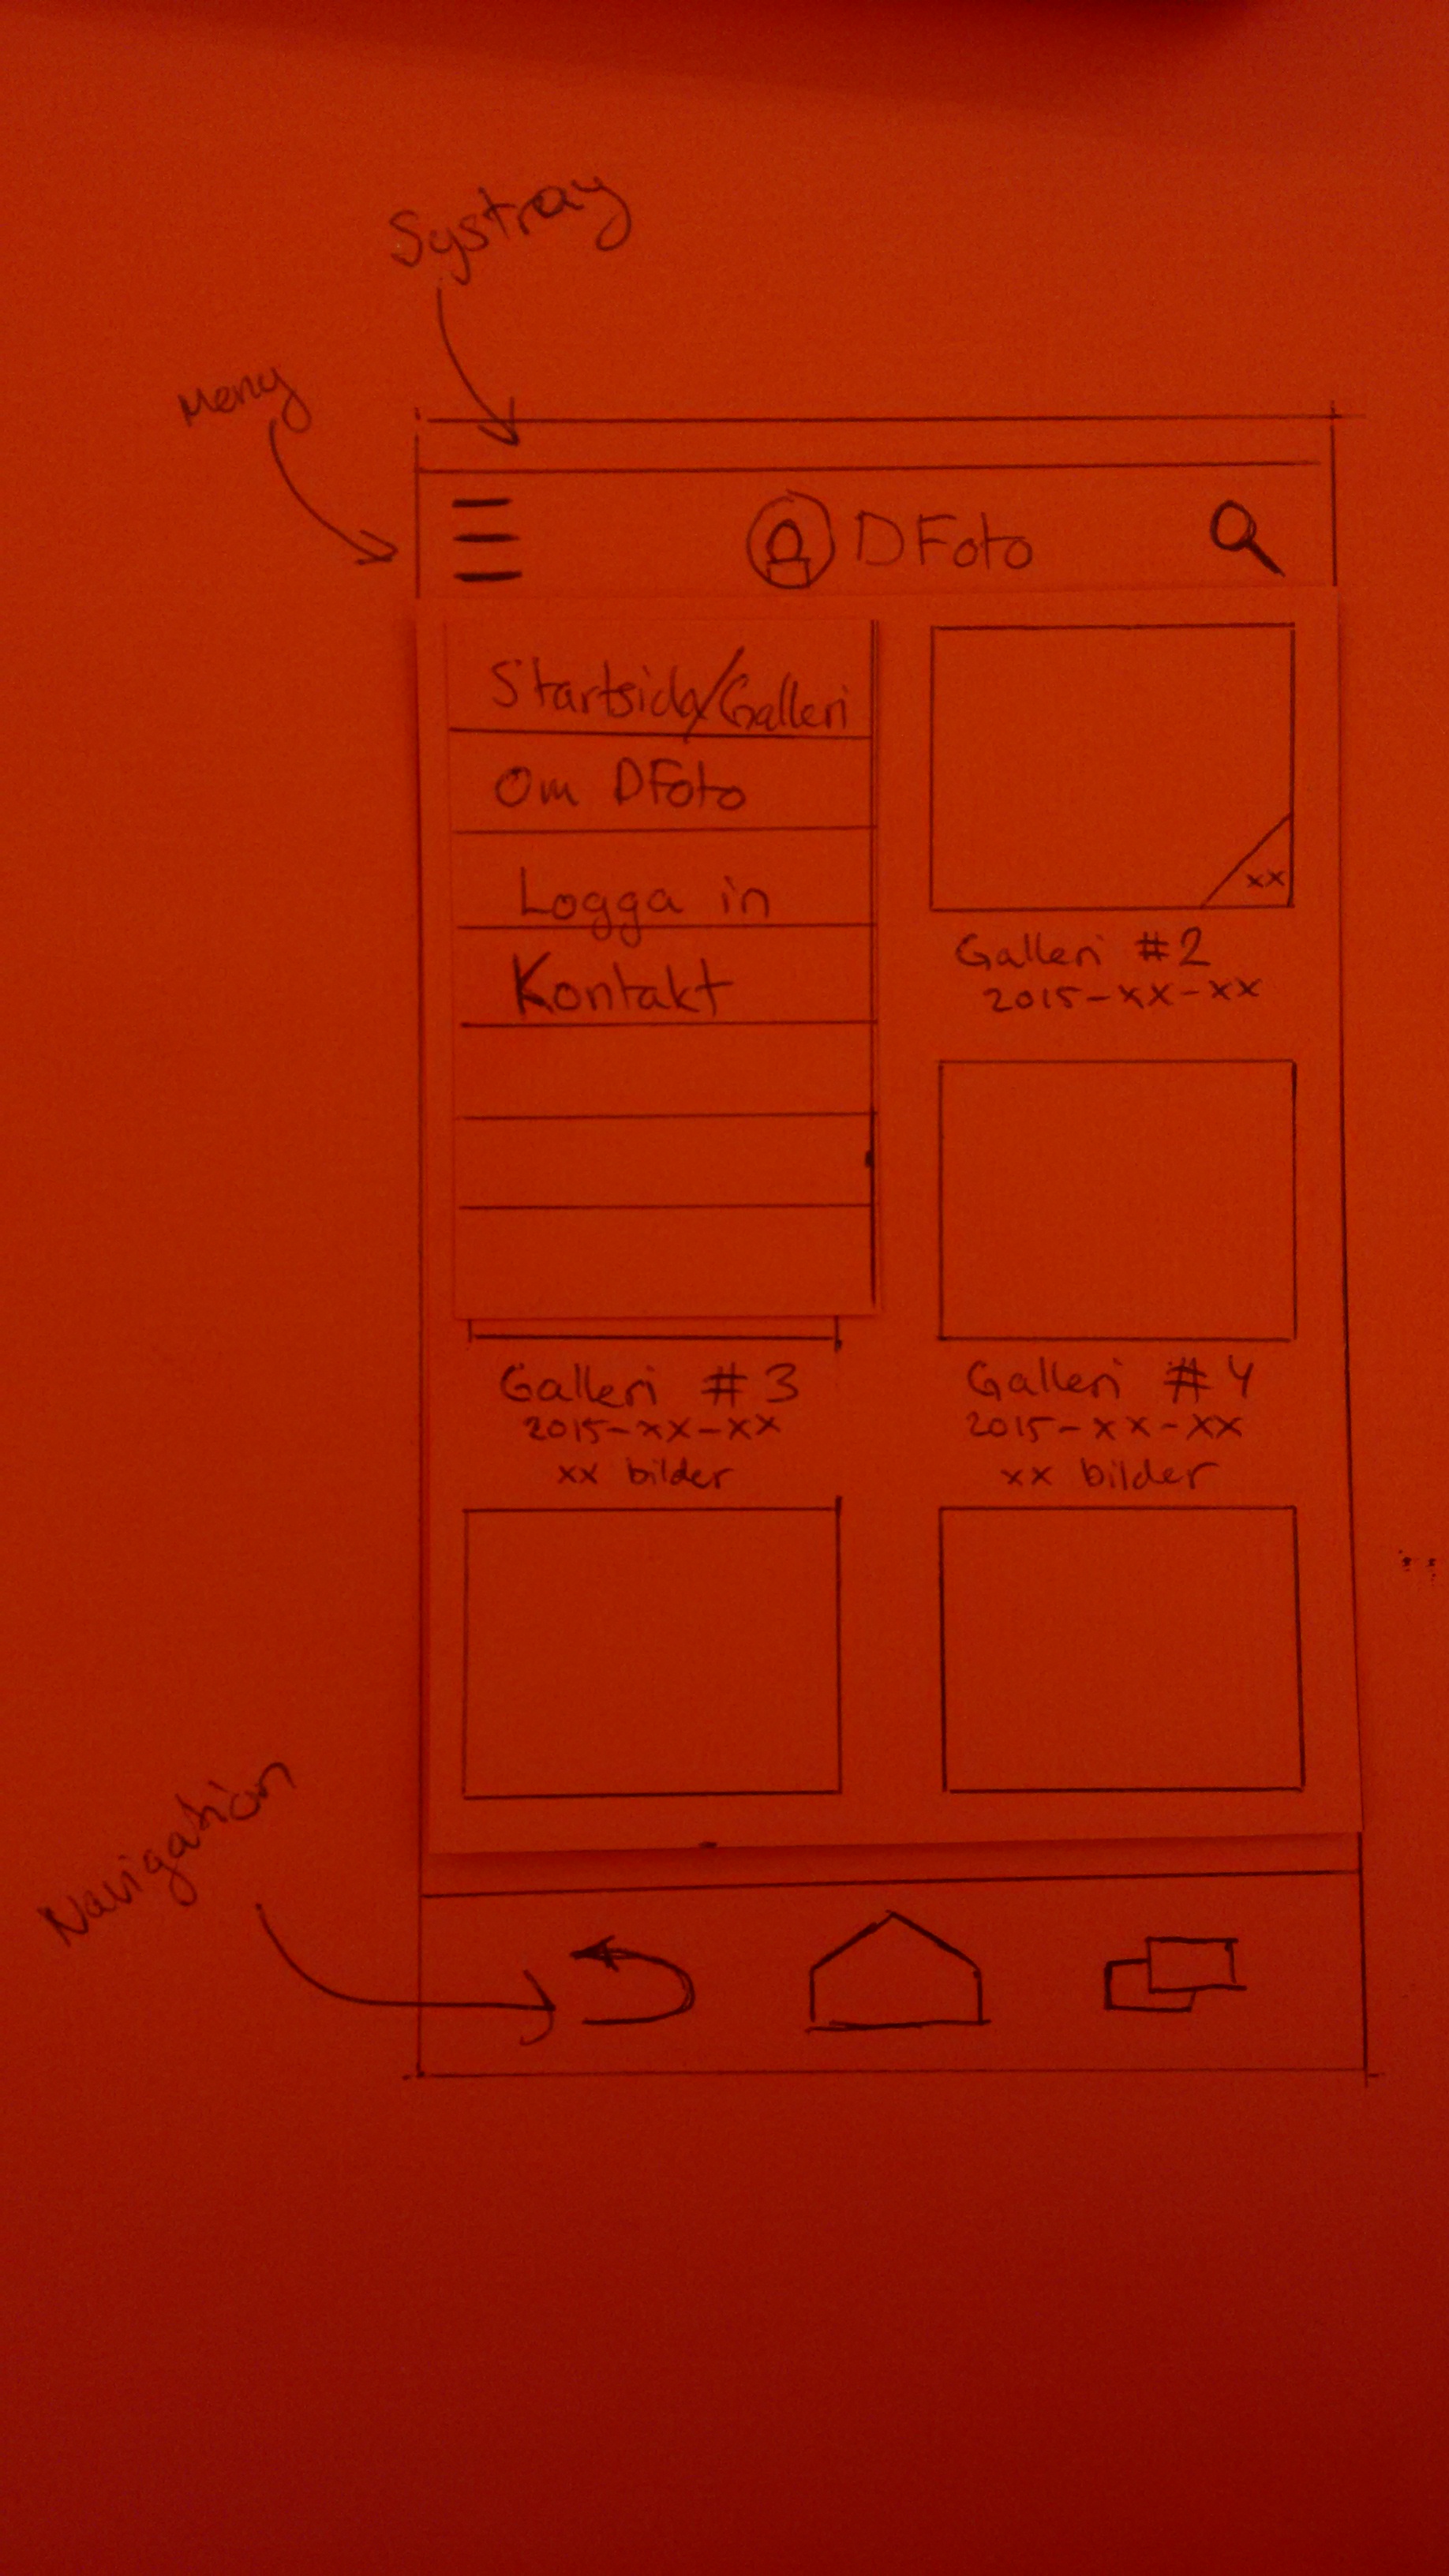 Systray
Meny
DFoto
Startsida/Galleri
Om DFoto
Logga in
Kontakt
xx
Galleri #2
2015-xx-xx
Galleri #3
2015-xx-xx
xx bilder
Galleri #4
2015-xx-xx
xx bilder
Navigation